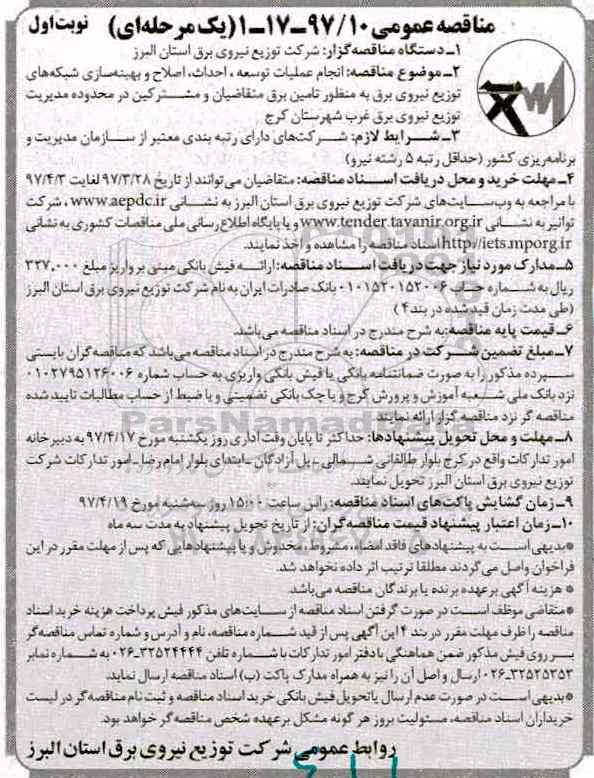 مناقصه عمومی ۹۷/۱۰-۱۷-۱ (یک مرحله‌ای) نوبت اول
۱-دستگاه مناقصه‌گزار: شرکت توزیع نیروی برق استان البرز
۲-موضوع مناقصه: انجام عملیات توسعه ، احداث، اصلاح و بهینه‌سازی شبکه‌های
توزیع نیروی برق به منظور تامین برق متقاضیان و مشترکین در محدوده مدیریت
توزیع نیروی برق غرب شهرستان کرج
۳-شرایط لازم: شرکت‌های دارای رتبه بندی معتبر از سازمان مدیریت و
برنامه‌ریزی کشور (حداقل رتبه ۵ رشته نیرو)
۴-مهلت خرید و محل دریافت اسناد مناقصه: متقاضیان می‌توانند از تاریخ ۹۷/۳/۲۸ لغایت ۹۷/۴/۳
با مراجعه به وب‌سایت‌های شرکت توزیع نیروی برق استان البرز به نشانی www.aepdc.ir ، شرکت
توانیر به نشانی www.tender.tavanir.org.ir و یا پایگاه اطلاع‌رسانی ملی مناقصات کشوری به نشانی
http://iets.mporg.ir اسناد مناقصه را مشاهده و اخذ نمایند.
۵-مدارک مورد نیاز جهت دریافت اسناد مناقصه: ارائه فیش بانکی مبنی بر واریز مبلغ ۳۲۷,۰۰۰
ریال به شماره حساب ۰۱۰۱۵۲۰۱۵۲۰۰۶ بانک صادرات ایران به نام شرکت توزیع نیروی برق استان البرز
(طی مدت زمان قید شده در بند ۴)
۶-قیمت پایه مناقصه: به شرح مندرج در اسناد مناقصه می‌باشد.
۷-مبلغ تضمین شرکت در مناقصه: به شرح مندرج در اسناد مناقصه می‌باشد که مناقصه‌گران بایستی
سپرده مذکور را به صورت ضمانتنامه بانکی یا فیش بانکی واریزی به حساب شماره ۰۱۰۲۷۹۵۱۲۶۰۰۶
نزد بانک ملی شعبه آموزش و پرورش کرج و یا چک بانکی تضمینی و یا ضبط از حساب مطالبات تایید شده
مناقصه گر نزد مناقصه گزار ارائه نمایند
۸-مهلت و محل تحویل پیشنهادها: حداکثر تا پایان وقت اداری روز یکشنبه مورخ ۹۷/۴/۱۷ به دبیرخانه
امور تدارکات واقع در کرج بلوار طالقانی شمالی - پل آزادگان - ابتدای بلوار امام رضا - امور تدارکات شرکت
توزیع نیروی برق استان البرز تحویل نمایند.
۹-زمان گشایش پاکت‌های اسناد مناقصه: راس ساعت ۱۵:۰۰ روز سه‌شنبه مورخ ۹۷/۴/۱۹
۱۰-زمان اعتبار پیشنهاد قیمت مناقصه‌گران: از تاریخ تحویل پیشنهاد به مدت سه ماه
*بدیهی است به پیشنهادهای فاقد امضاء، مشروط، مخدوش و یا پیشنهادهایی که پس از مهلت مقرر در این
فراخوان واصل می‌گردند مطلقا ترتیب اثر داده نخواهد شد.
* هزینه آگهی برعهده برنده یا برندگان مناقصه می‌باشد.
*متقاضی موظف است در صورت گرفتن اسناد مناقصه از سایت‌های مذکور فیش پرداخت هزینه خرید اسناد
مناقصه را ظرف مهلت مقرر در بند ۴ این آگهی پس از قید شماره مناقصه، نام و آدرس و شماره تماس مناقصه‌گر
بر روی فیش مذکور ضمن هماهنگی با دفتر امور تدارکات با شماره تلفن ۳۲۵۲۴۴۴۴-۰۲۶ به شماره نمابر
۳۲۵۲۵۳۵۳-۰۲۶ ارسال و اصل آن را نیز به همراه مدارک پاکت (ب) اسناد مناقصه ارسال نماید.
*بدیهی است در صورت عدم ارسال یا تحویل فیش بانکی خرید اسناد مناقصه و ثبت نام مناقصه گر در لیست
خریداران اسناد مناقصه، مسئولیت بروز هر گونه مشکل برعهده شخص مناقصه‌گر خواهد بود.
روابط عمومی شرکت توزیع نیروی برق استان البرز
ParsNamadData